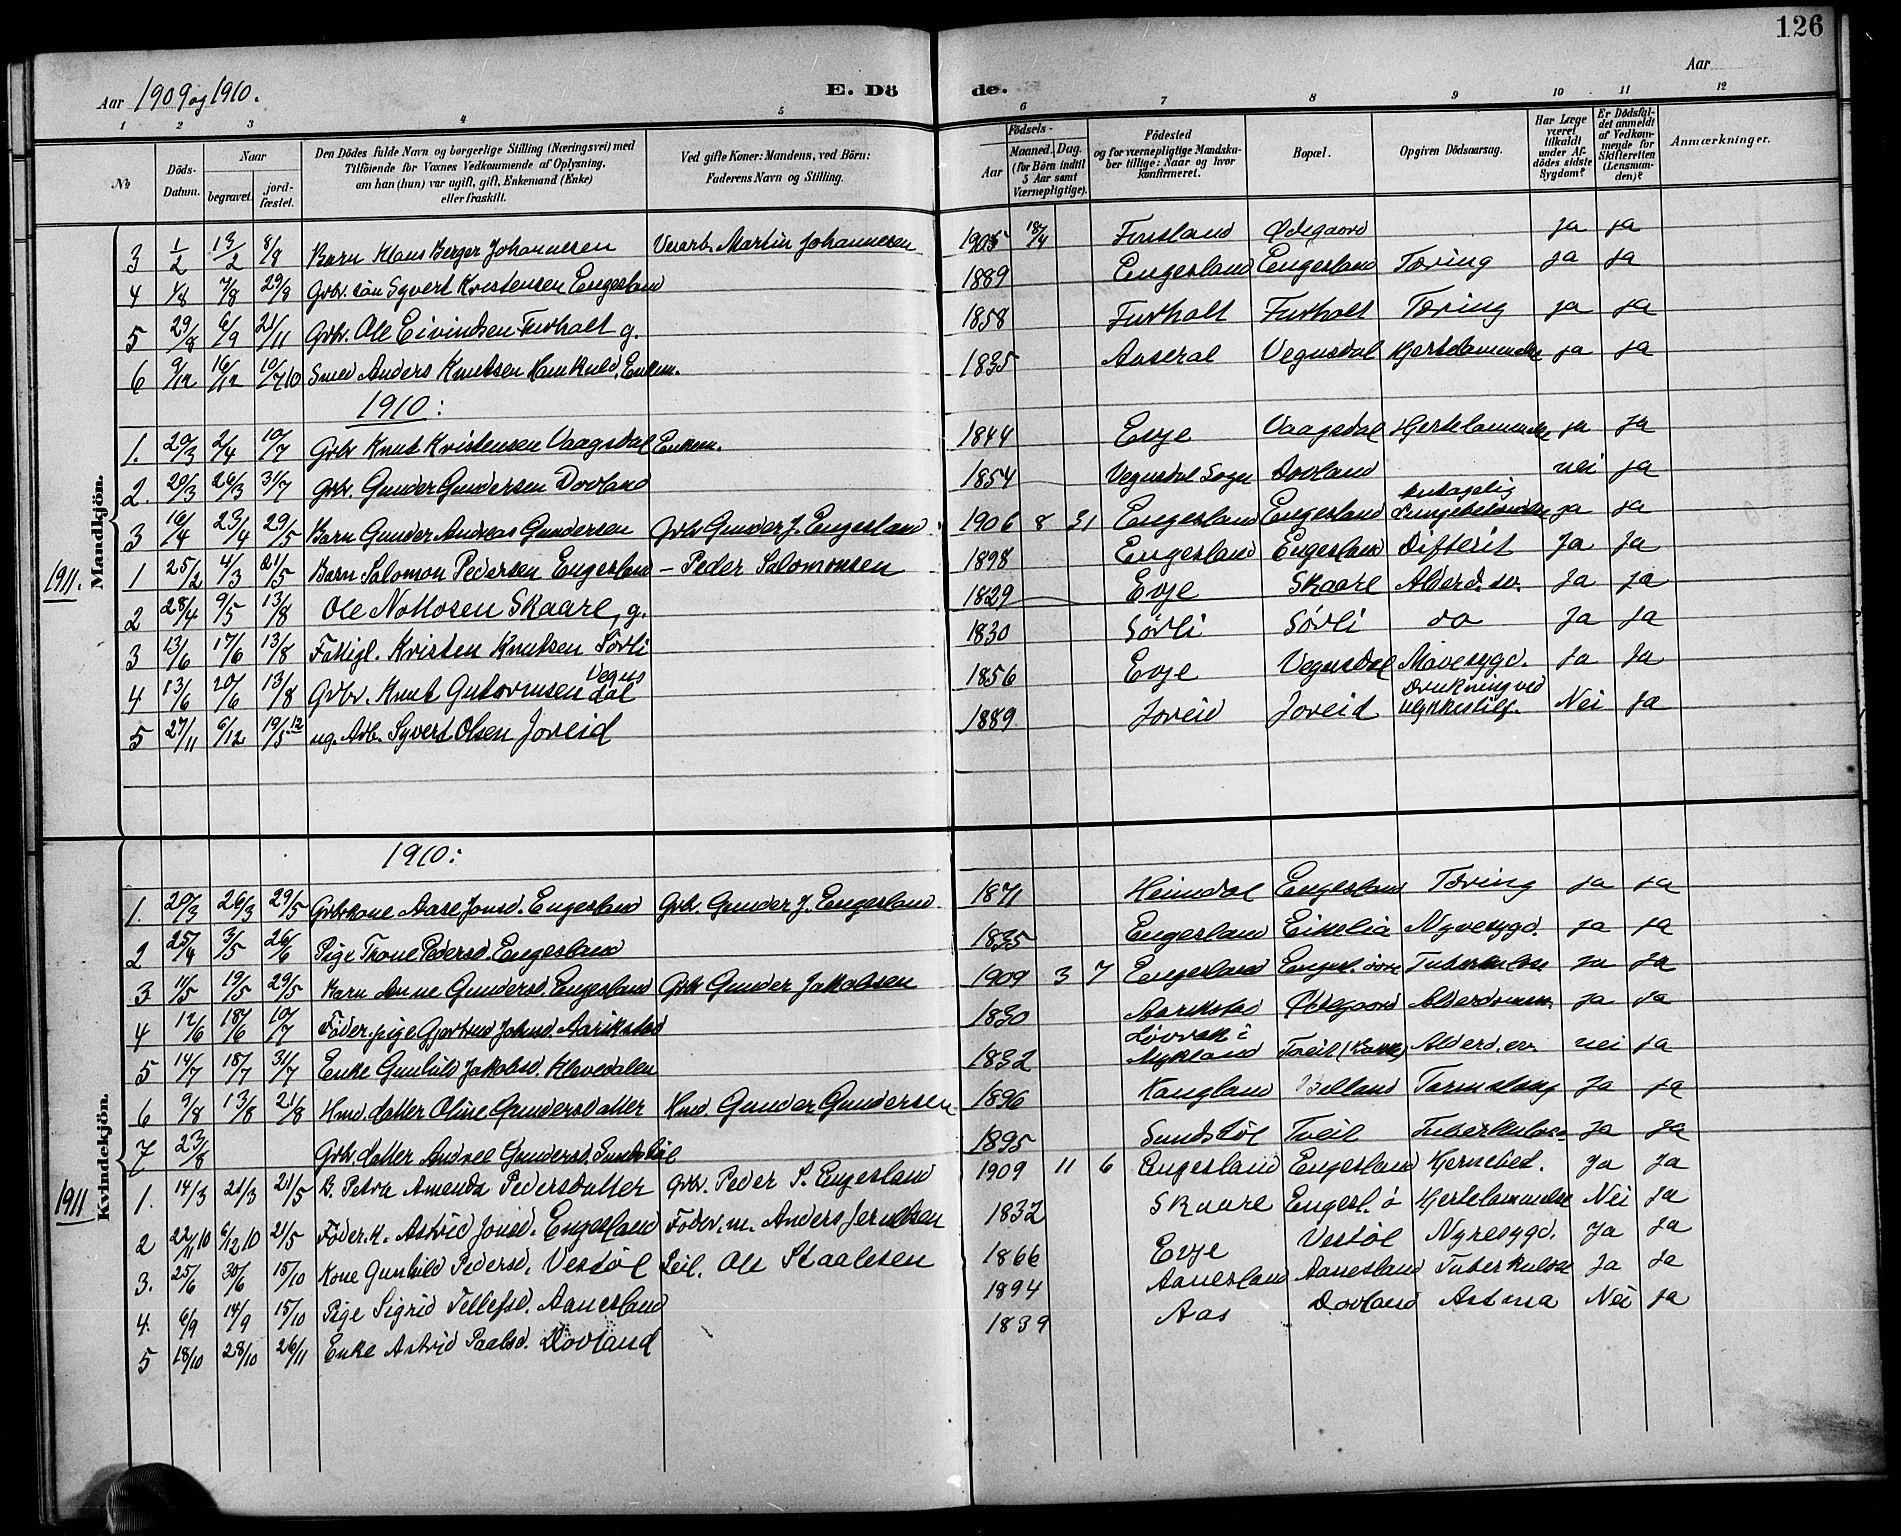 126
Aar 1909 og 1910. E. Dö de. Aar
1 2 3 4 5 6 7 8 9 10 11 12
No Döds-Datum. Naar begravet. jordfæstet. Den Dödes fulde Navn og borgerlige Stilling (Næringsvei) med Tilföiende for Voxnes Vedkommende af Oplysning, om han (hun) var ugift, gift, Enkemand (Enke) eller fraskilt. Ved gifte Koner: Mandens, ved Börn: Faderens Navn og Stilling. Födsels- Aar Maaned. Dag. (for Börn indtil 5 Aar samt Værnepligtige). Födested og for værnepligtige Mandskaber tillige: Naar og hvor konfirmeret. Bopæl. Opgiven Dödsaarsag. Har Læge været tilkaldt under Afdödes sidste Sygdom? Er Dödsfaldet anmeldt af Vedkommende for Skifteretten (Lensmanden)? Anmærkninger.
Mandkjön.
3 1/2 13/2 8/8 Barn Klaus Berger Johannesen Veiarb. Martin Johannesen 1905 18/4 Finsland Ødegaard ja ja
4 1/8 7/8 29/8 Grbr. sön Syvert Kristensen Engesland 1889 Engesland Engesland Tæring ja ja
5 29/8 6/9 21/11 Grbr. Ole Eivindsen Furholt g. 1858 Furholt Furholt Tæring ja ja
6 9/12 16/12 10/7 10 Smed Anders Knutsen Homkuld, Enkem. 1835 Aaseral Vegusdal Hjertelammelse ja ja
1910:
1. 29/3 2/4 10/7 Grbr Knut Kristensen Vaagsdal Enkem. 1844 Evje Vaagsdal Hjertelammelse ja ja
2. 20/3 26/3 31/7 Grbr. Gunder Gundersen Dovland 1854 Vegusdal Sogn Dovland nei ja
3 16/4 23/4 29/5 Barn Gunder Andreas Gundersen Grbr Gunder J. Engesland 1906 8 31 Engesland Engesland Antagelig Lungebetændelse ja ja
1911.
1 25/2 4/3 21/5 Barn Salomon Pedersen Engesland - Peder Salomonsen 1898 Engesland Engesland Difterit Ja Ja
2 28/4 9/5 13/8 Ole Nottosen Skaare, g. 1829 Evje Skaare Alderd. sv. Ja ja
3 13/6 17/6 13/8 Fattigl. Kristen Knutsen Sörli 1830 Sörli Sörli do Ja Ja
4 13/6 20/6 13/8 Grbr. Knut Guttormsen Vegusdal 1856 Evje Vegusdal Mavesygd. Ja Ja
5 27/11 6/12 19/5 12 ug. Arb. Syvert Olsen Joreid 1889 Joreid Joreid Drukning ved Ulykkestilf. Nei Ja
Kvindekjön.
1910:
1. 20/3 26/3 29/5 Grbrkone Aase Jonsd. Engesland Grbr. Gunder J. Engesland 1871 Heimdal Engesland Tæring ja ja
2 25/4 3/5 26/6 Pige Trone Pedersd. Engesland 1835 Engesland Eikelia Nyresygd. ja ja
3 11/5 19/5 29/5 Barn Anne Gundersd. Engesland Grbr Gunder Jakobsen 1909 3 7 Engesland Engesl. övre Tuberkulose Ja Ja
4 12/6 18/6 10/7 Föder.pige Gjertrud Johnsd. Aarikstad 1830 Aarikstad Ødegaard Alderdomm. ja Ja
5 14/7 18/7 31/7 Enke Gunhild Jakobsd. Klevedalen 1832 Lövrak i Mykland Tveit Alderd. sv. nei ja
6 9/8 13/8 21/8 Hmd. datter Oline Gundersdatter Hmd Gunder Gundersen 1896 Kangland Tarmslyng Ja ja
7 23/8 Grbr datter Andrea Gundersd. Sundstöl 1895 Sundstöl Tveit Tuberkulose Ja Ja
1911
1. 14/3 21/3 21/5 B. Petra Amanda Pedersdatter Grbr. Peder S. Engesland 1909 11 6 Engesland Engesland Hjernebet. Ja Ja
2 22/11 10 6/12 10 21/5 Föder.k. Astrid Jonsd. Engesland Föder.m. Anders Jernelsen 1832 Skaare Engesl. ö Hjertelammelse Nei ja
3. 25/6 30/6 15/10 Kone Gunhild Pedersd. Vestöl Leil. Ole Staalesen 1866 Evje Vestöl Nyresygd. Ja Ja
4. 6/9 14/9 15/10 Pige Sigrid Tellefsd. Aanesland 1894 Aanesland Aanesland Tuberkulose Ja Ja
5 18/10 28/10 26/11 Enke Astrid Paalsd. Dovland 1839 Aas Dovland Astma Nei ja